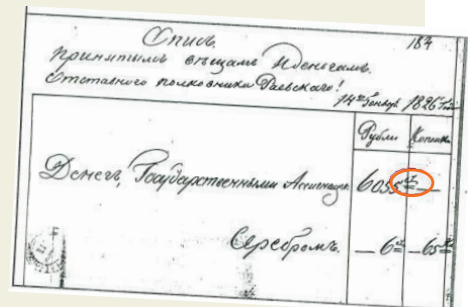 Опись
184
принятымъ вещамъ и деньгамъ
Отставного полковника Раевскаго!
14го Генваря 1826 года
Рубли Копейки
Денегъ, Государственными Ассигнаціями 6055
Серебромъ 6 65